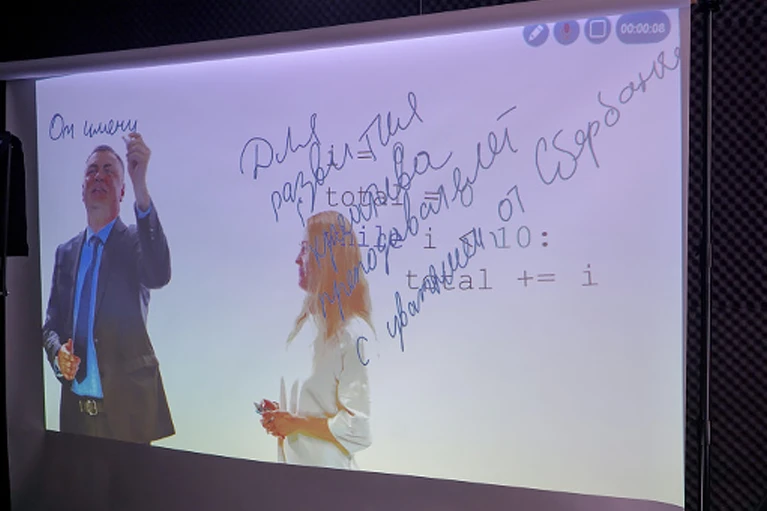 00:00:08
От имени
i =
total =
while i < 10:
total += i
Для
развития
креатива
преподавателей
с уважением от Сбербанка